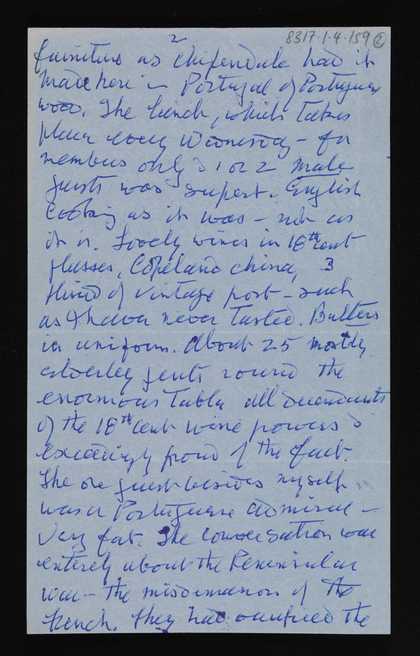 2
8317.1.4.159
furniture as Chipendale had it
made here in Portugal of Portuguese
wood. The lunch, which takes
place every Wednesday – for
members only & 1 or 2 male
guests was superb. English
cooking as it was – not as
it is. Lovely wines in 18th cent
glasses, Copeland china, 3
kinds of vintage port – such
as I have never tasted. Butlers
in uniform. About 25 mostly
elderley gents round the
enormous table all descendants
of the 18th cent wine powers &
exceedingly proud of the fact.
The one guest besides myself
was a Portuguese admiral –
very fat. The conversation was
entirely about the Peninsular
war – the misdemeanors of the
French. They had occupied the